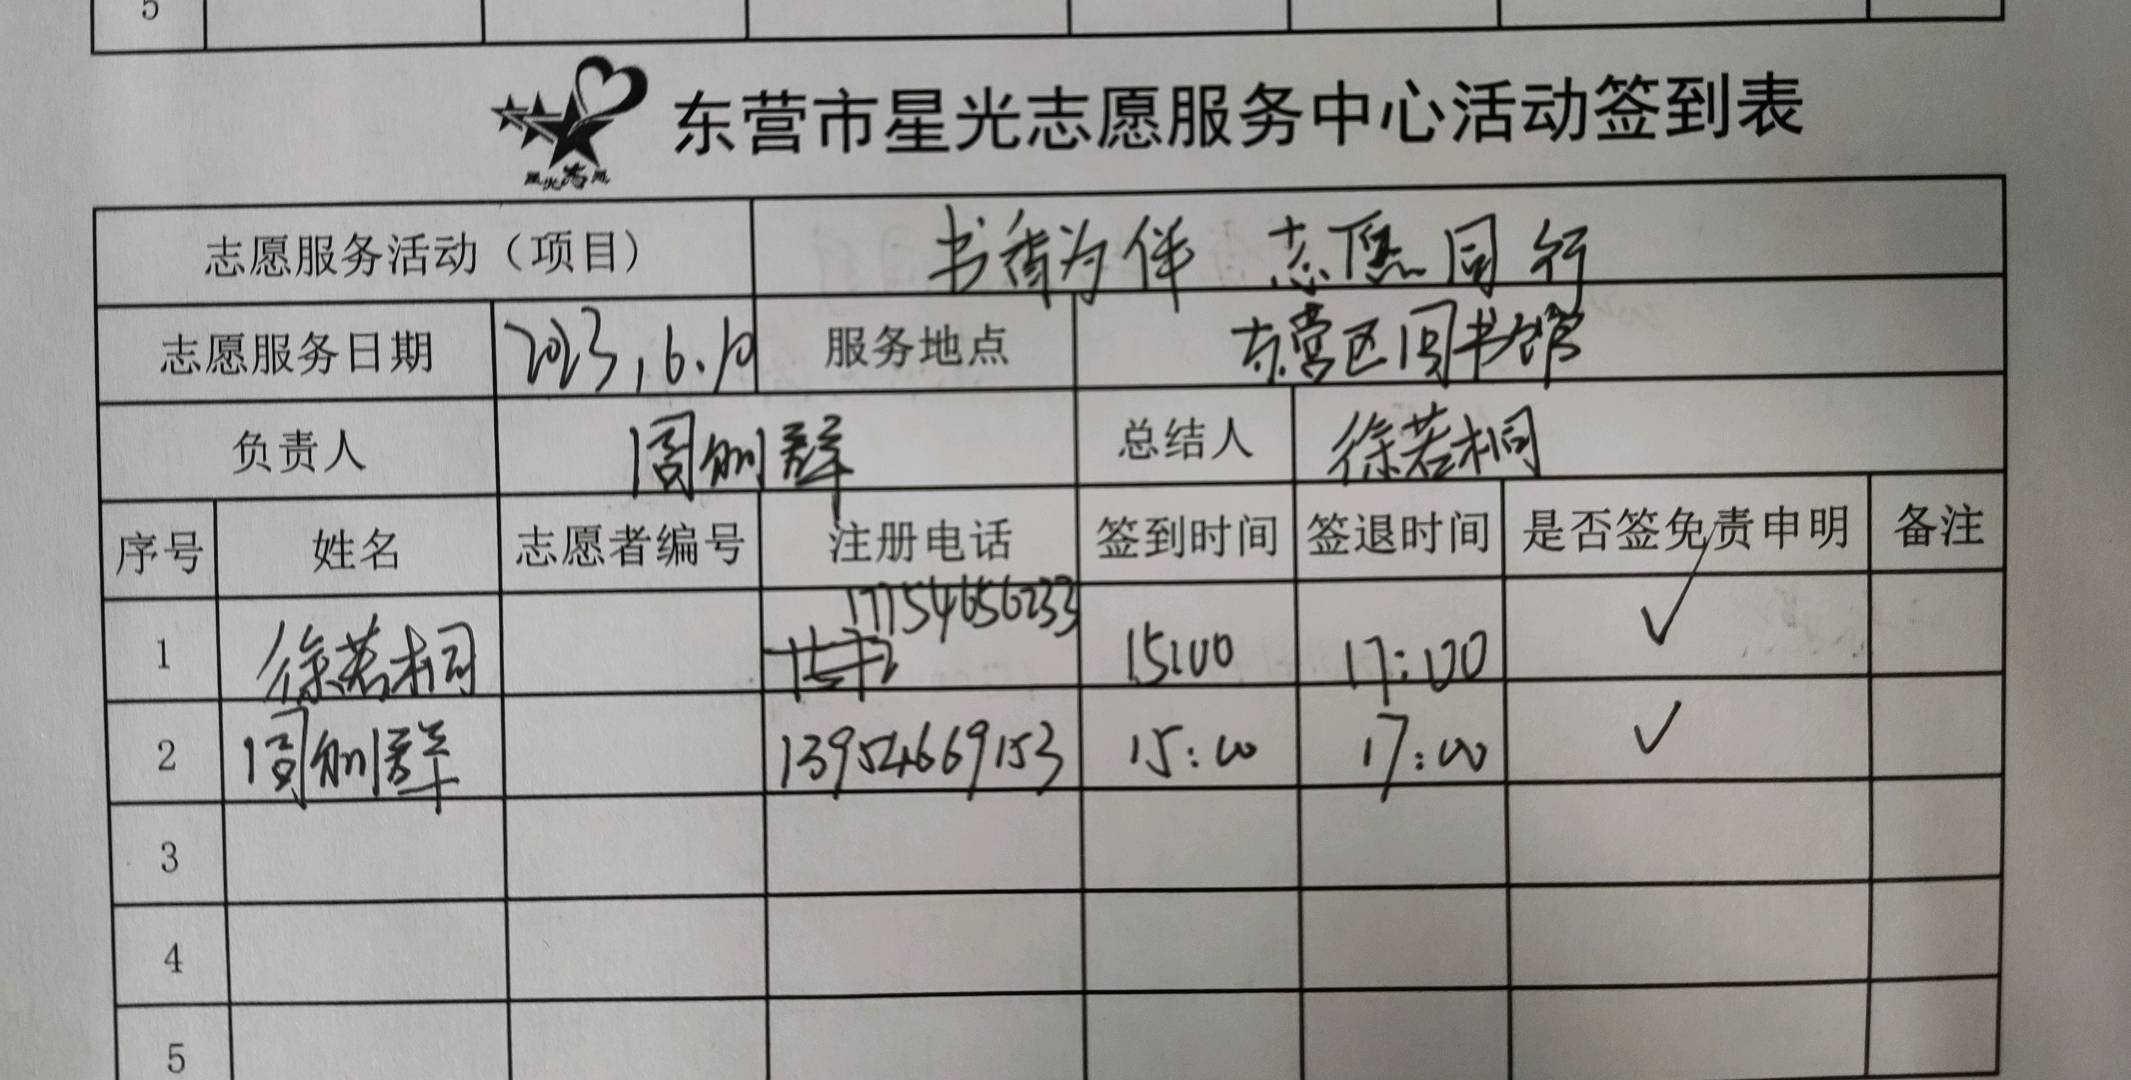 5
东营市星光志愿服务中心活动签到表
星光志愿
志愿服务活动（项目） 书香为伴 志愿同行
志愿服务日期 2023.6.10 服务地点 东营区图书馆
负责人 周刪群 总结人 徐若桐
序号 姓名 志愿者编号 注册电话 签到时间 签退时间 是否签免责申明 备注
1 徐若桐 17154656233 15:00 17:00 ✓
2 周刪群 13954669153 15:00 17:00 ✓
3
4
5